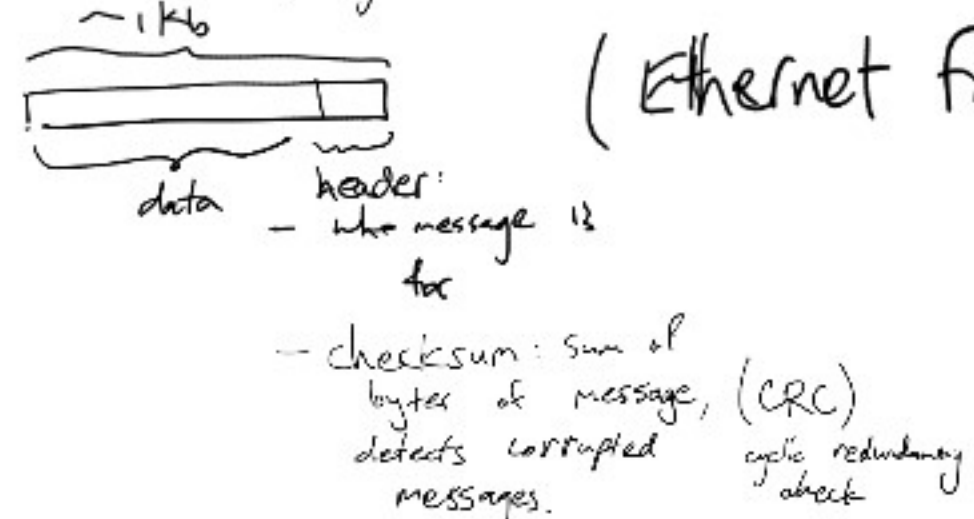 ~1kb
(Ethernet
data
header:
- who message is
for
- checksum: sum of
bytes of message, (CRC)
detects corrupted cyclic redundancy
messages. check